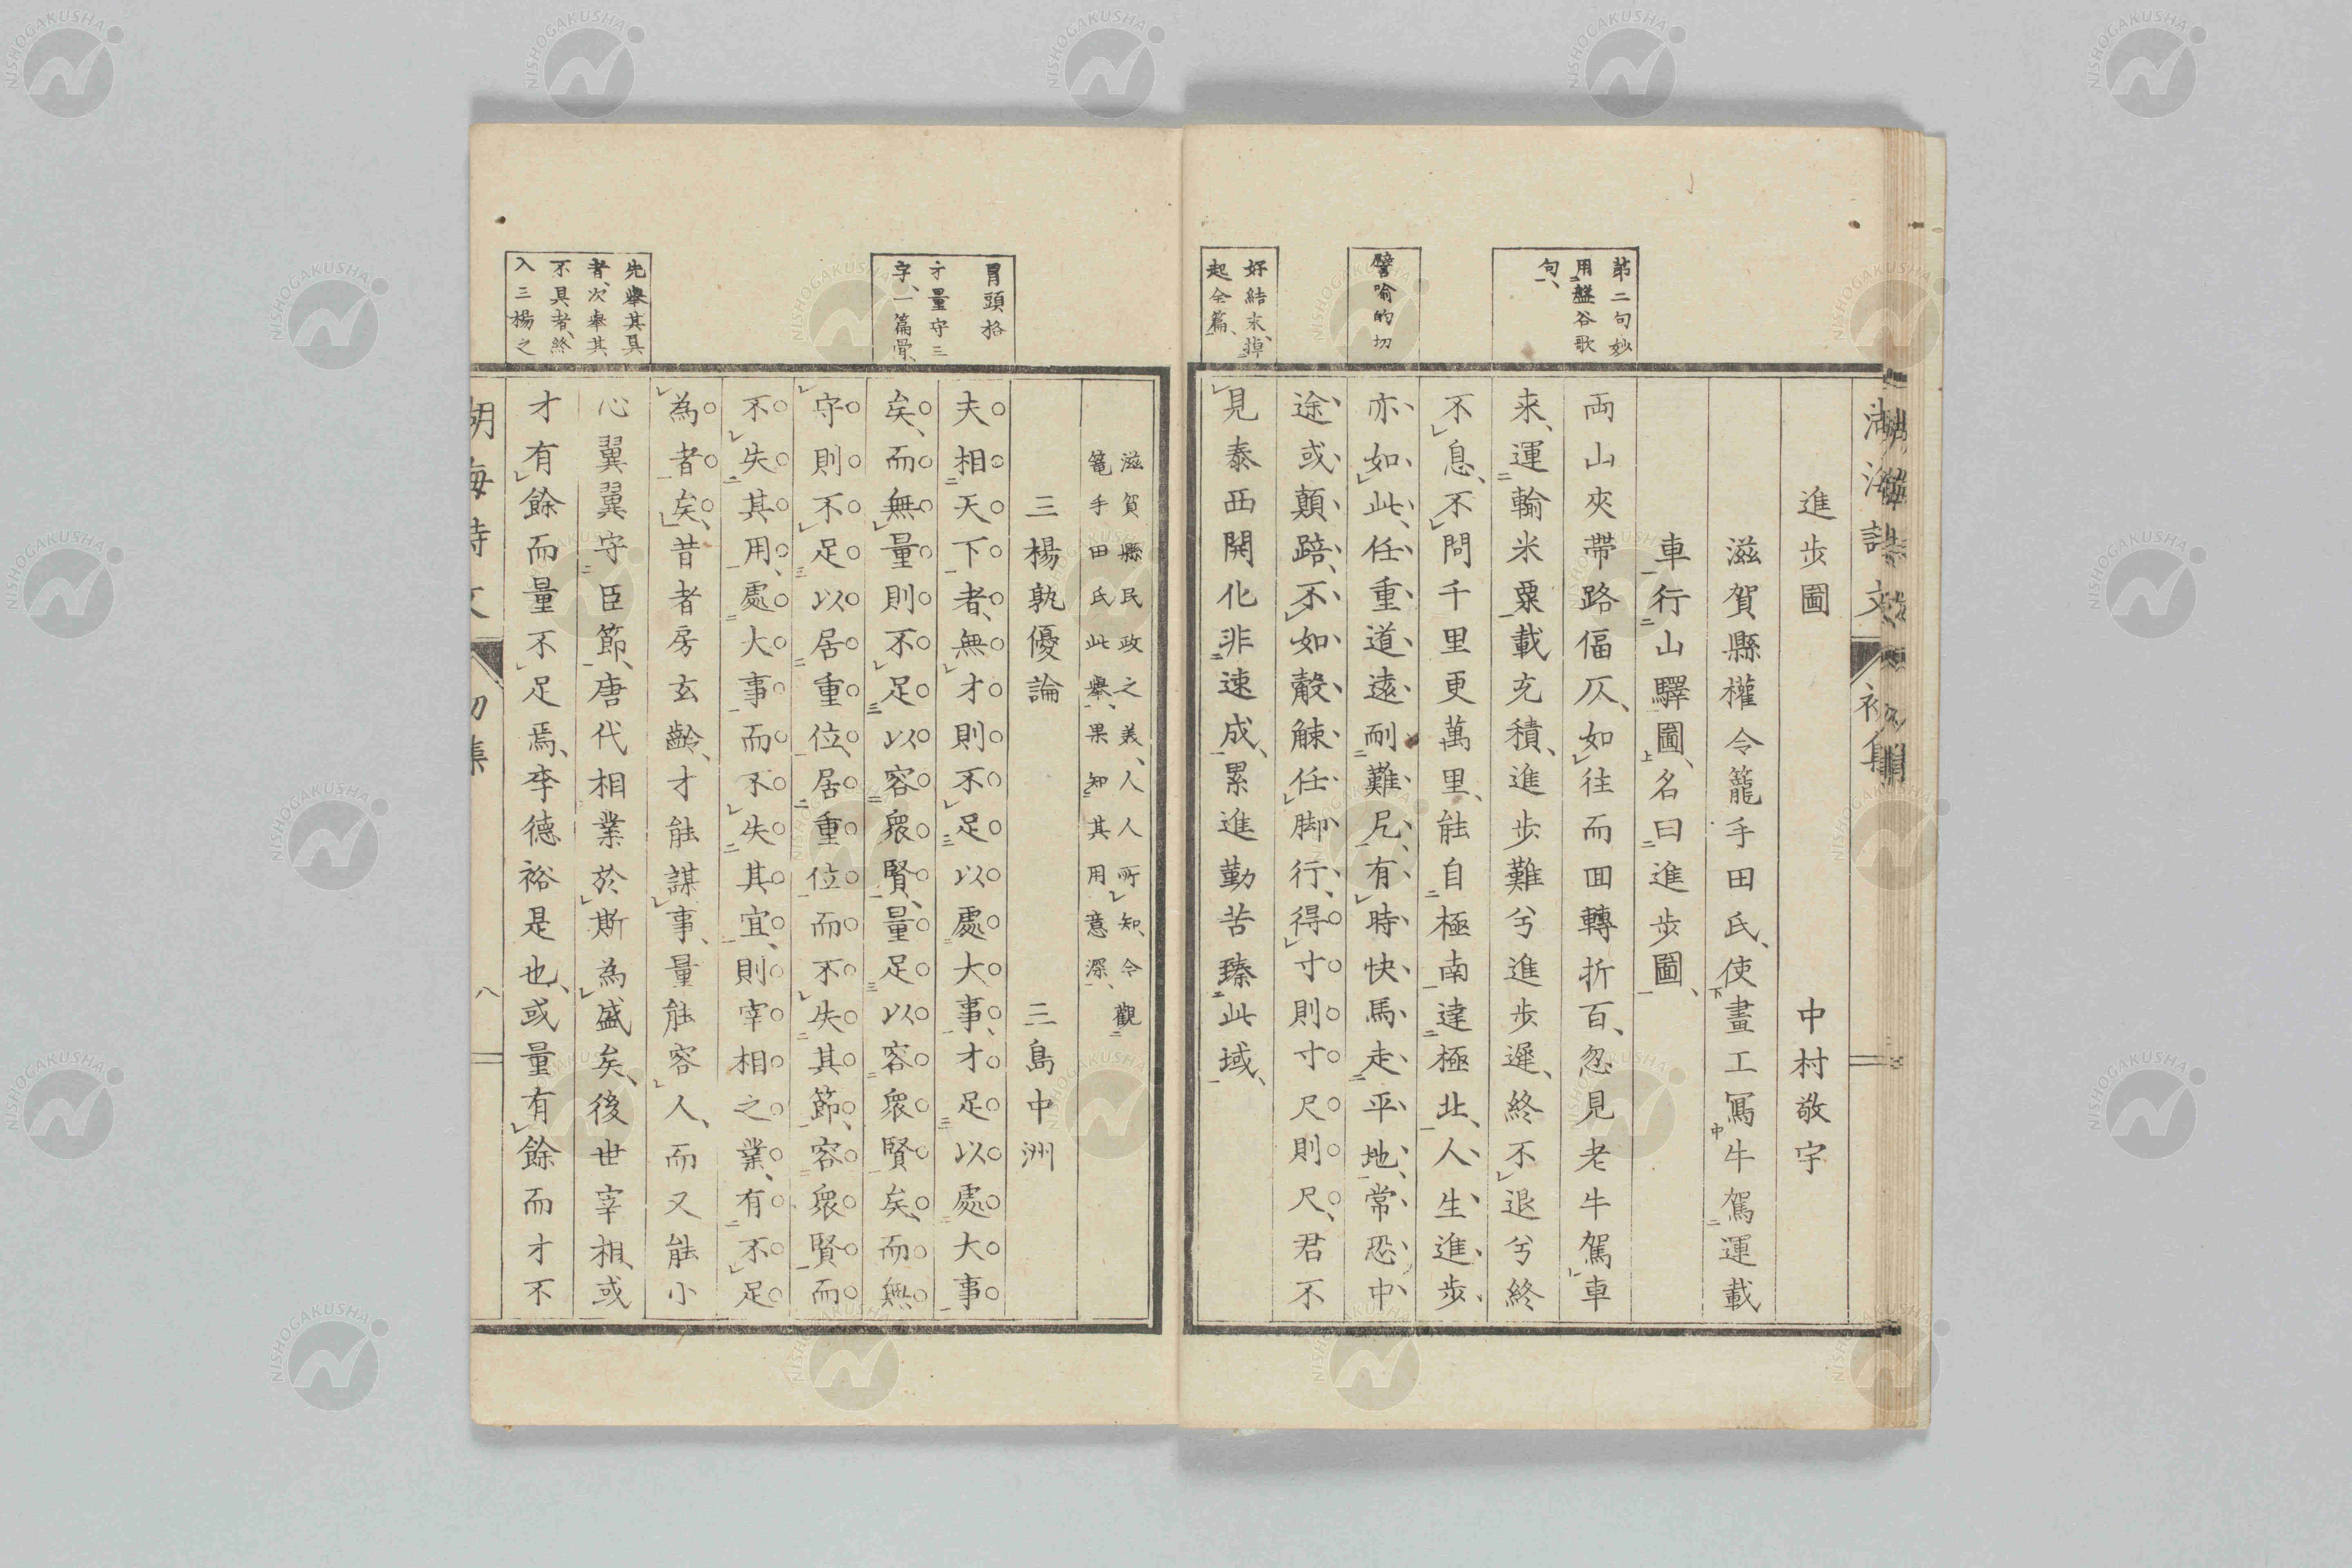 進歩圖 中村敬宇
滋賀縣權令籠手田氏、使畫工寫牛駕運載
車行山驛圖、名曰進歩圖、
両山夾帶路偪仄、如往而回轉折百、忽見老牛駕車
来、運輸米粟載充積、進歩難兮進歩遲、終不退兮終
不息、不問千里更萬里、能自極南達極北、人生進歩
亦如此、任重道遠耐難尼、有時快馬走平地、常恐中
途或顛踣、不如觳觫任脚行、得寸則寸尺則尺、君不
見泰西開化非速成、累進勤苦臻此域、
第二句妙
用盤谷歌
句、
譬喻的切
好結末、掉
起全篇、
滋賀縣民政之美、人人所知、今觀
篭手田氏此舉、果知其用意深、
三楊孰優論 三島中洲
夫相天下者、無才則不足以處大事、才足以處大事
矣、而無量則不足以容衆賢、量足以容衆賢矣、而無
守則不足以居重位、居重位而不失其節、容衆賢而
不失其用、處大事而不失其宜、則宰相之業、有不足
為者矣、昔者房玄齡、才能謀事、量能容人、而又能小
心翼翼守臣節、唐代相業於斯為盛矣、後世宰相、或
才有餘而量不足焉、李德裕是也、或量有餘而才不
冒頭拈
才量守三
字、一篇骨、
先舉其具
者、次舉其
不具者、終
入三楊之
八
NISHOGAKUSHA